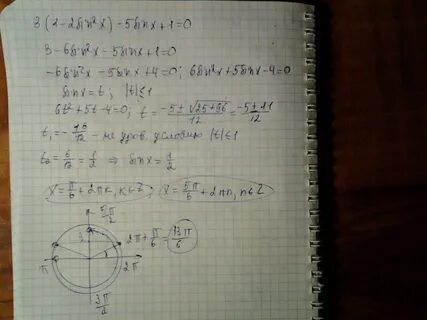 3(1-2sin²x)-5sinx+1=0
3-6sin²x-5sinx+1=0
-6sin²x-5sinx+4=0; 6sin²x+5sinx-4=0
sinx=t; |t|≤1
6t²+5t-4=0; t=(-5±√(25+96))/12=(-5±11)/12
t₁=-16/12 - не удов. условию |t|≤1
t₂=6/12=1/2 ⇒ sinx=1/2
x=π/6+2πk, k∈Z; x=5π/6+2πn, n∈Z
5π/2
2π+π/6=13π/6
π 2π
3π/2